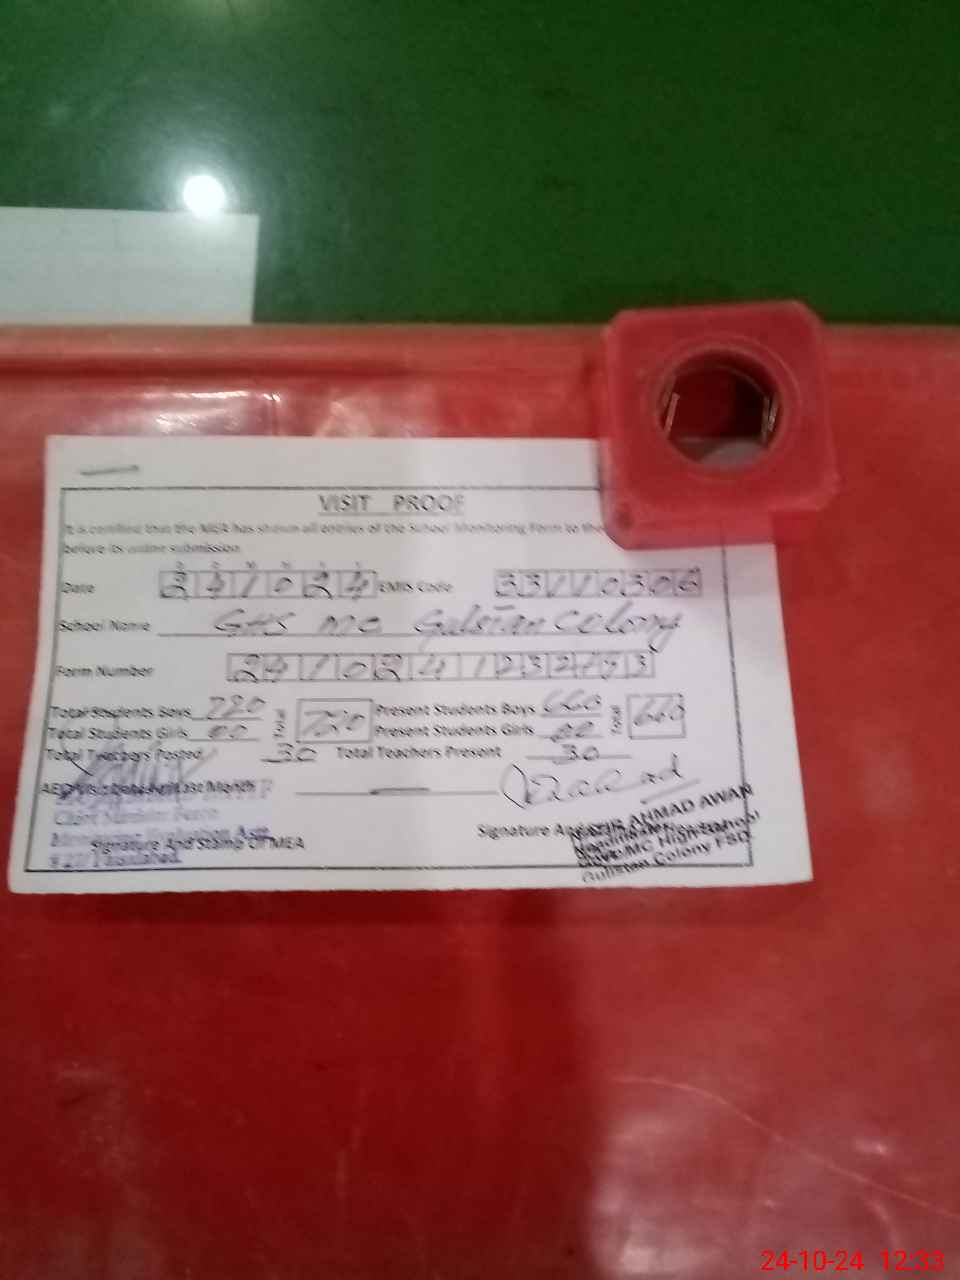 VISIT PROOF
It is certified that the MEA has shown all entries of the School Monitoring Form to the
before its online submission
Date 241024 EMIS Code 33110306
School Name GHS MC Gulstan Colony
Form Number
Total Students Boys 720 720 Present Students Boys 660 660
Total Students Girls 00 Present Students Girls 00
Total Teachers Posted 30 Total Teachers Present 30
AEO Visit Date in Last Month
Signature And Stamp Of MEA
Signature And
AHMAD AWAN
Govt MC High School
Gulistan Colony FSD
24-10-24 12:33